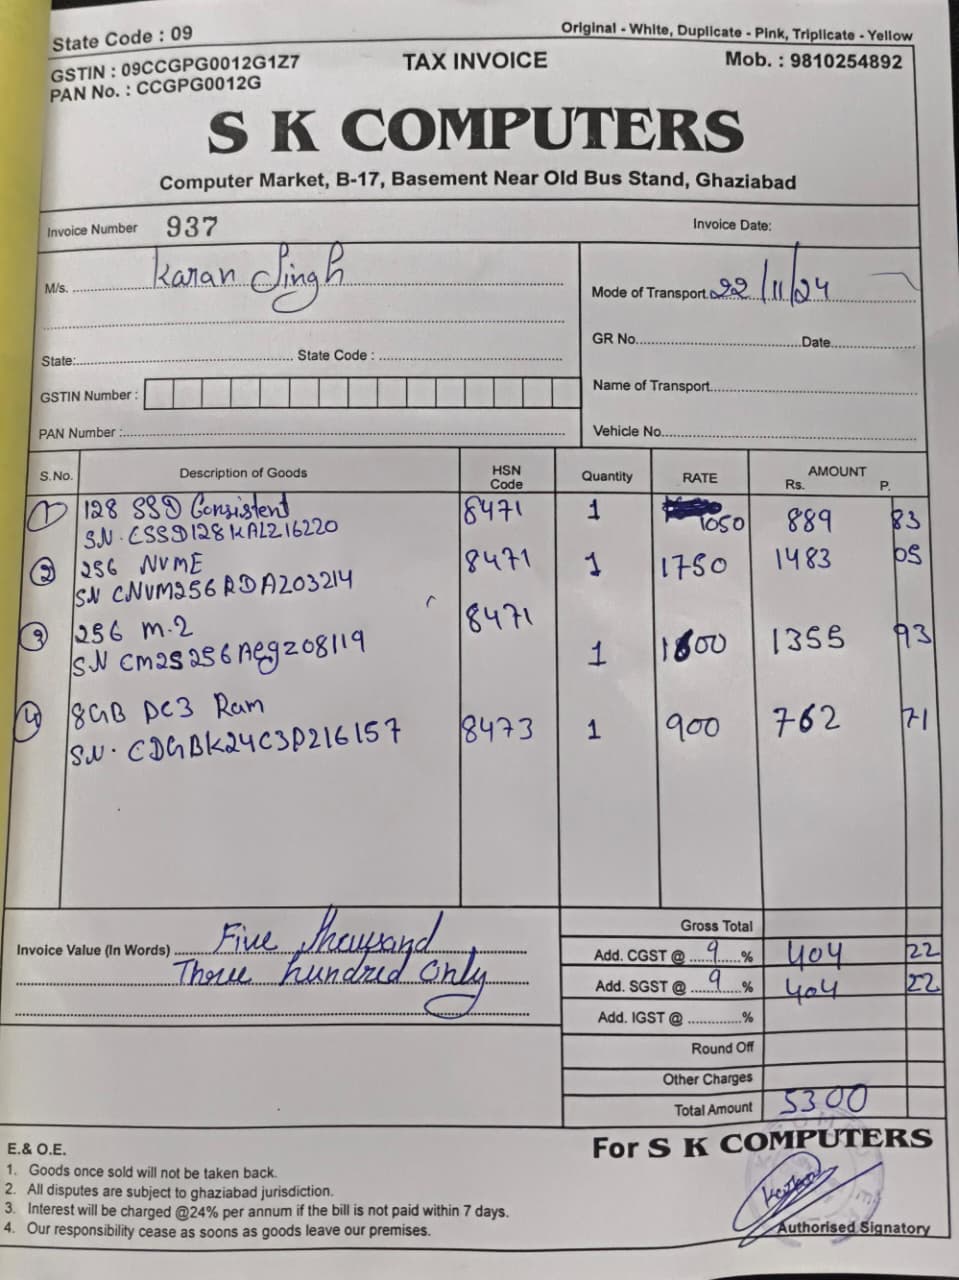 State Code : 09
Original - White, Duplicate - Pink, Triplicate - Yellow
GSTIN : 09CCGPG0012G1Z7
TAX INVOICE
Mob. : 9810254892
PAN No. : CCGPG0012G
S K COMPUTERS
Computer Market, B-17, Basement Near Old Bus Stand, Ghaziabad
Invoice Number 937
Invoice Date:
M/s. Karan Singh
Mode of Transport 22/11/24
GR No. Date
State: State Code :
Name of Transport
GSTIN Number :
PAN Number :
Vehicle No.
S.No. Description of Goods HSN Code Quantity RATE AMOUNT Rs. P.
1 128 SSD Consistent 8471 1 1050 889 83
S.N. CSSD128KALZ16220
2 256 NVME 8471 1 1750 1483 05
SN CNVM256RDAZ03214
3 256 m.2 8471 1 1600 1355 93
S.N CM2S256AegZ08119
4 8GB DC3 Ram 8473 1 900 762 71
S.N. CDGBK24C3P216157
Gross Total
Invoice Value (In Words) Five Thousand
Three hundred Only
Add. CGST @ 9 % 404 22
Add. SGST @ 9 % 404 22
Add. IGST @ %
Round Off
Other Charges
Total Amount 5300
E.& O.E.
1. Goods once sold will not be taken back.
2. All disputes are subject to ghaziabad jurisdiction.
3. Interest will be charged @24% per annum if the bill is not paid within 7 days.
4. Our responsibility cease as soons as goods leave our premises.
For S K COMPUTERS
Authorised Signatory